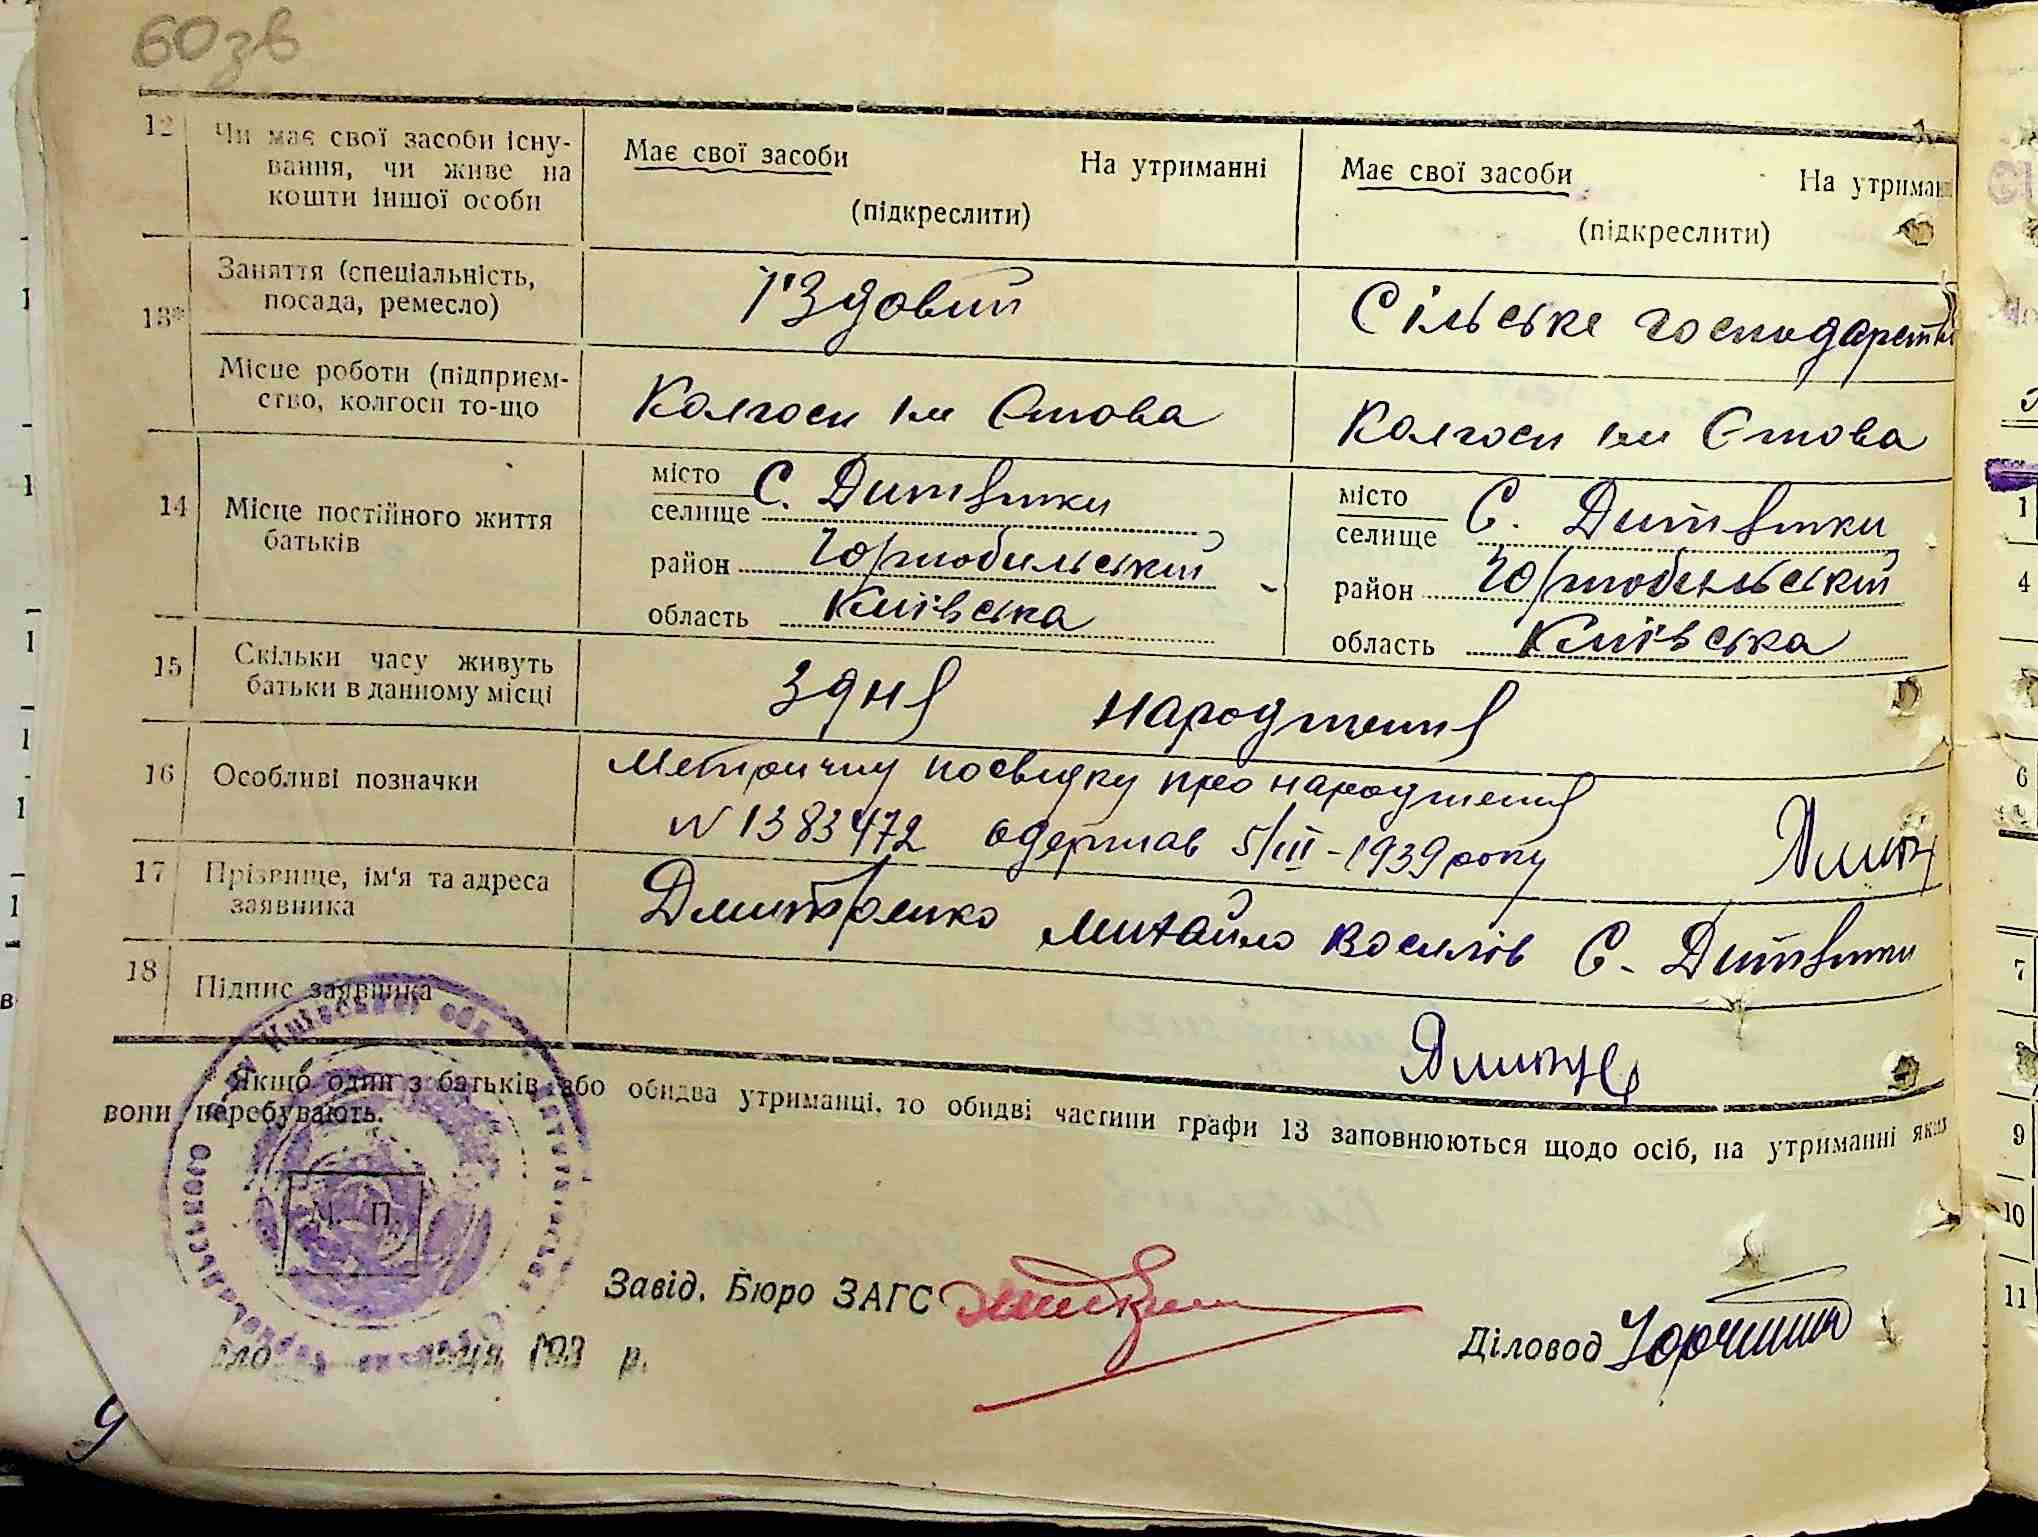 60зв
12 Чи має свої засоби існу-
вання, чи живе на
кошти іншої особи
Має свої засоби На утриманні
(підкреслити)
Має свої засоби На утриман
(підкреслити)
13* Заняття (спеціальність,
посада, ремесло)
Їздовий
Сільське господарств
Місце роботи (підприєм-
ство, колгосп то-що
Колгосп ім
Колгосп ім
14 Місце постійного життя
батьків
місто
селище С. Дитятки
район Чорнобильській
область Київська
місто
селище С. Дитятки
район Чорнобильській
область Київська
15 Скільки часу живуть
батьки в данному місці
З дня народження
16 Особливі позначки
Метричну посвідку про народження
N 1383472 одержав 5/III-1939 року
17 Прізвище, ім'я та адреса
заявника
Дмитренко Михайло Василів С. Дитятки
18 Підпис заявника
Якщо один з батьків або обидва утриманці, то обидві частини графи 13 заповнюються щодо осіб, на утриманні яких
вони перебувають.
М. П.
Завід. Бюро ЗАГС
Діловод
193 р.